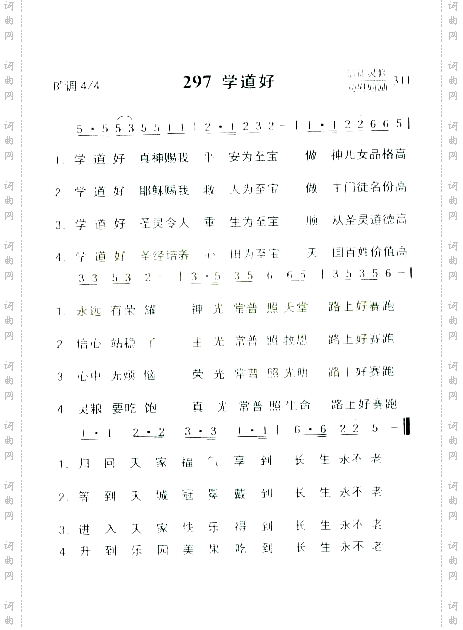 297 学道好
B♭调 4/4
311
5·5 53 55 11 | 2·1 232 - | 1·1 22665 |
1. 学 道 好 真神赐我 平 安为至宝 做 神儿女品格高
2 学 道 好 耶稣赐我 救 人为至宝 做 主门徒名份高
3. 学 道 好 圣灵令人 重 生为至宝 顺 从圣灵道德高
4. 学 道 好 圣经培养 心 田为至宝 天 国百姓价值高
33 53 2 - | 3·5 35 6 65 | 35356 - |
1. 永远 有荣 耀 神 光 常普 照天堂 路上好赛跑
2 信心 站稳 了 主 光 常普 照救恩 路上好赛跑
3 心中 无烦 恼 荣 光 常普 照光明 路上好赛跑
4 灵粮 要吃 饱 真 光 常普 照生命 路上好赛跑
1·1 2·2 3·3 1·1 | 6·6 22 5 -
1. 归 回 天 家 福 气 享 到 长 生 永不 老
2. 等 到 天 城 冠 冕 戴 到 长 生 永不 老
3. 进 入 天 家 快 乐 得 到 长 生 永不 老
4 升 到 乐 园 美 果 吃 到 长 生 永不 老
词曲网
词曲网
词曲网
词曲网
词曲网
词曲网
词曲网
词曲网
词曲网
词曲网